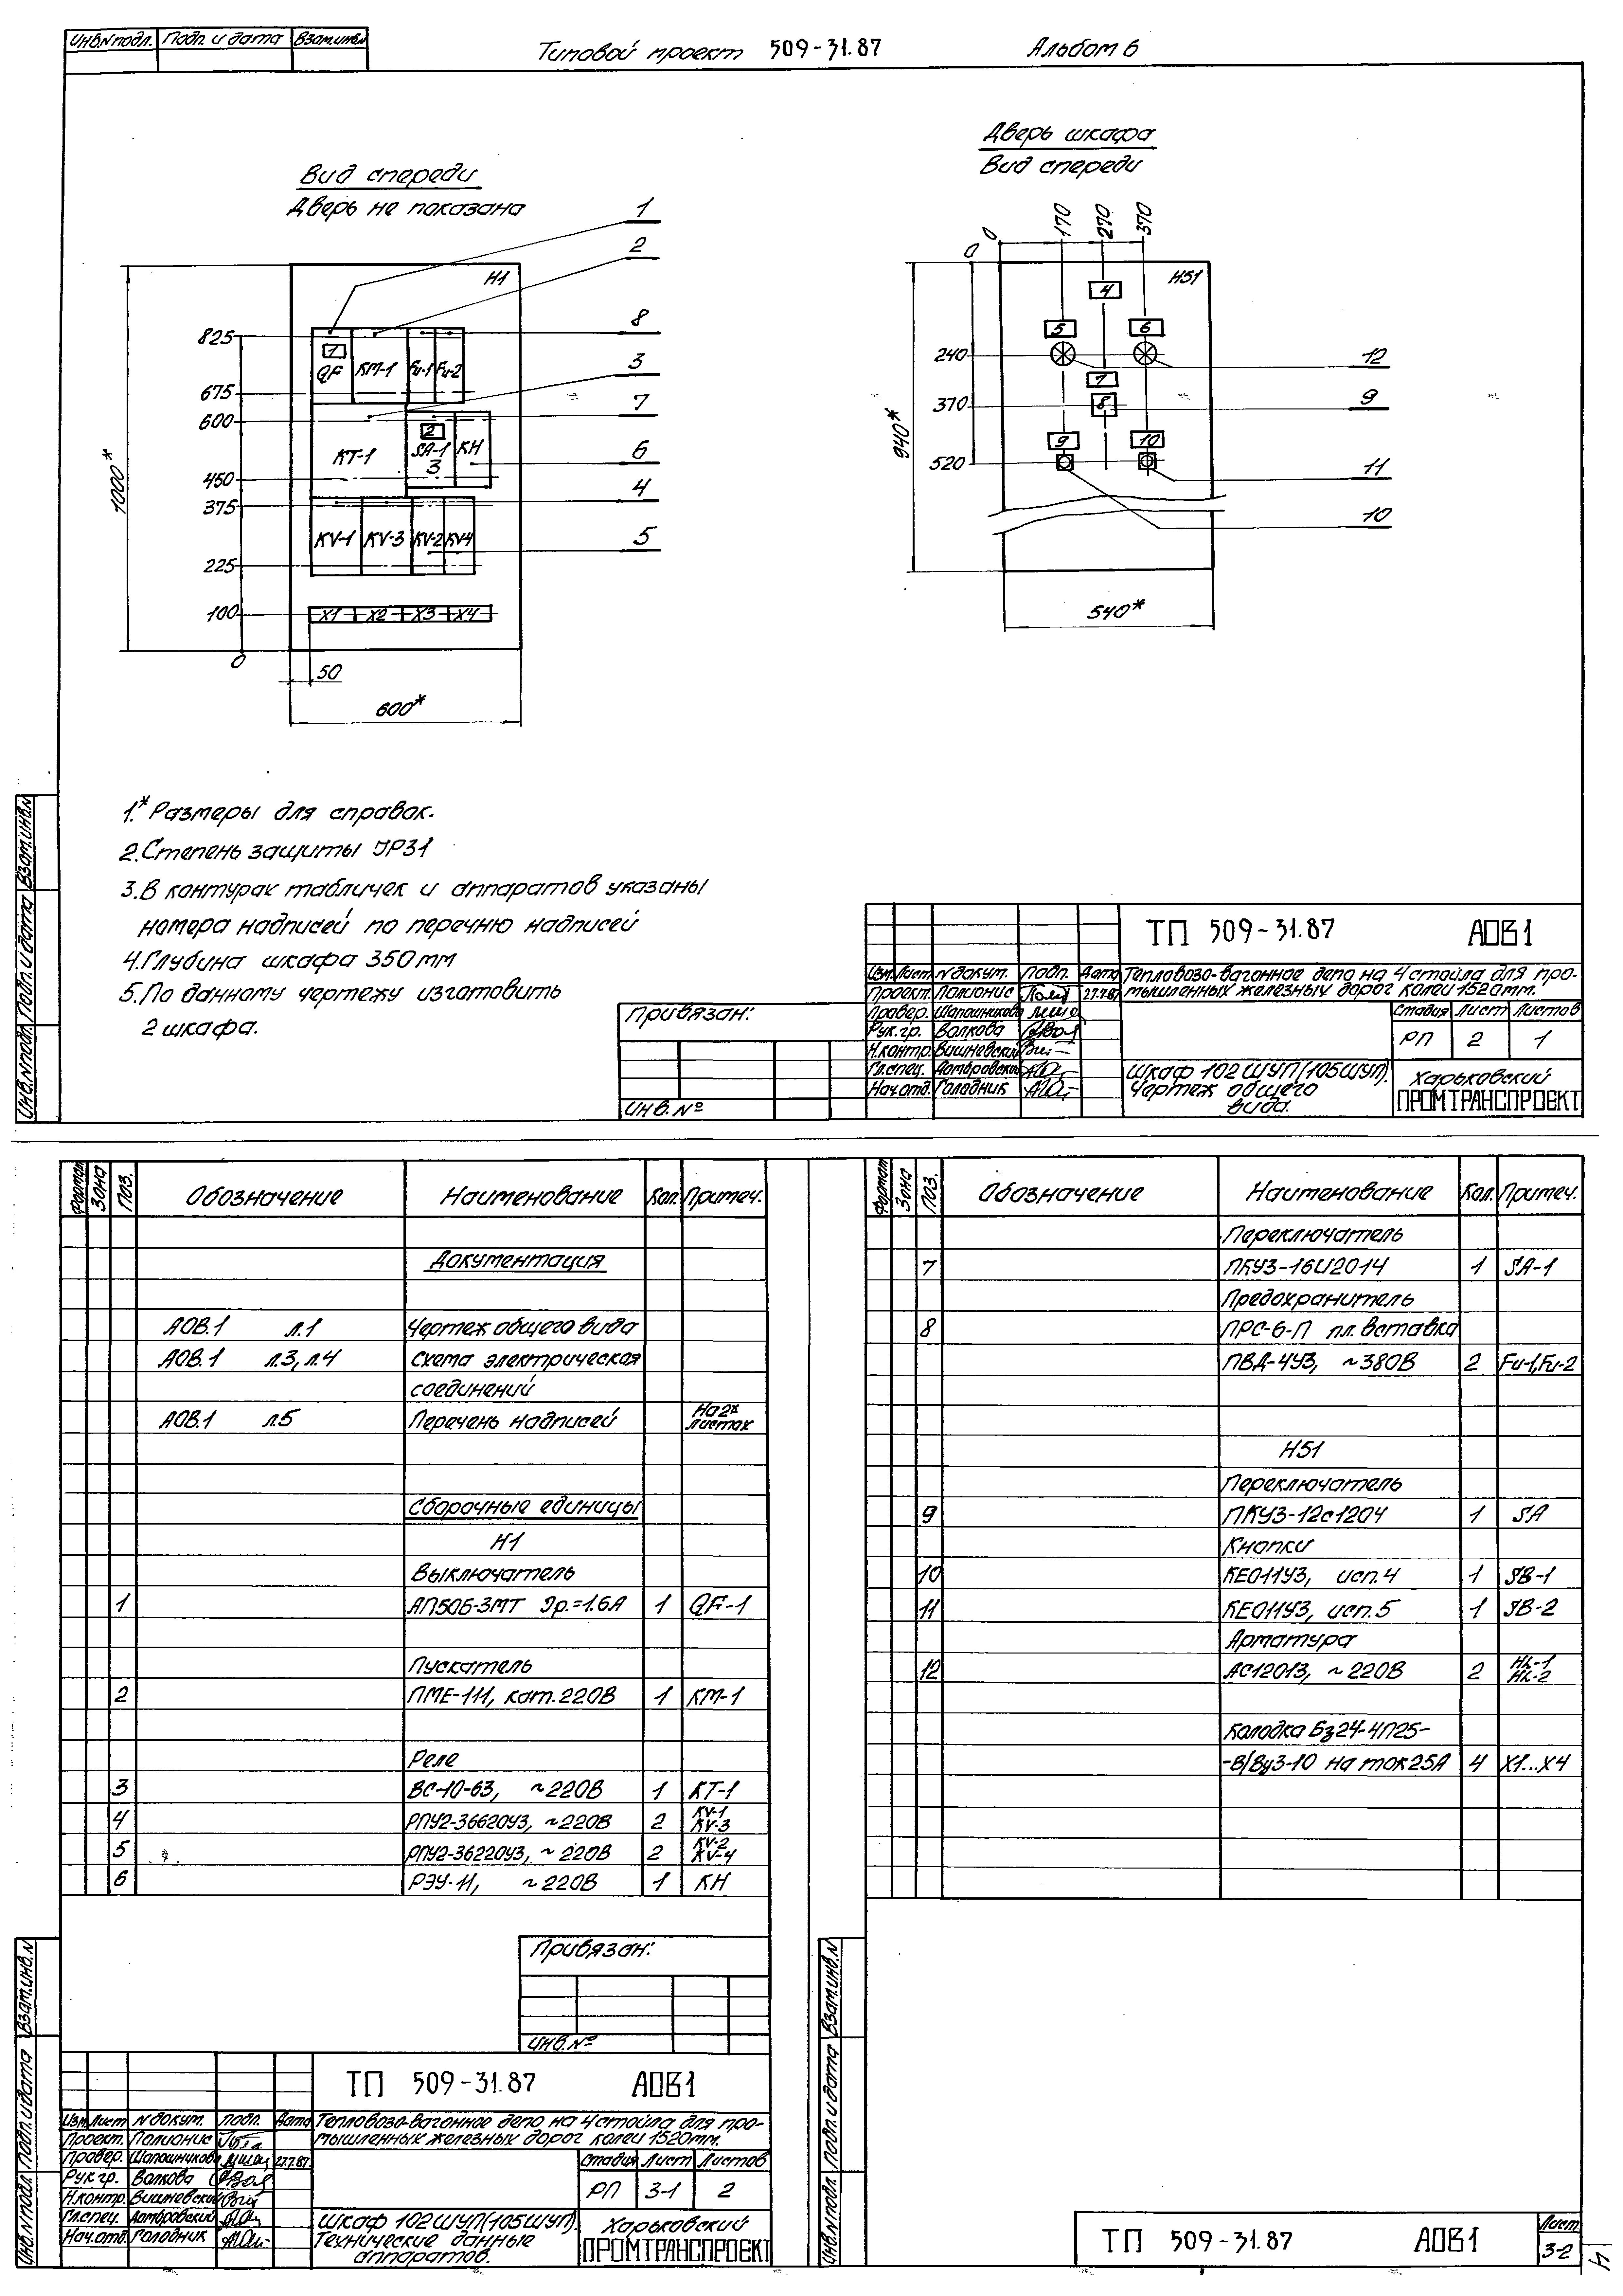 Инв.N подл.
Подп. и дата
Взам.инв.N
Типовой проект 509-31.87
Альбом 6
Вид спереди
Дверь не показана
1
2
8
3
7
6
4
5
Н1
825
675
600
450
375
225
100
0
1000*
1
QF
КМ-1
Fu-1
Fu-2
КТ-1
2
SA-1
3
КН
KV-1
KV-3
KV-2
KV-4
X1
X2
X3
X4
50
600*
Дверь шкафа
Вид спереди
0
0
170
270
370
Н51
4
5
6
240
7
370
8
9
10
520
940*
540*
12
9
11
10
1.* Размеры для справок.
2. Степень защиты JP31
3. В контурах табличек и аппаратов указаны
номера надписей по перечню надписей
4. Глубина шкафа 350мм
5. По данному чертежу изготовить
2 шкафа.
Привязан:
Инв.№
ТП 509-31.87 АОВ1
Изм. Лист N докум. Подп. Дата
Проект. Полионис 27.7.87
Провер. Шапошникова
Рук.гр. Волкова
Н.контр. Вишневский
Гл.спец. Домбровский
Нач.отд. Голодник
Тепловозо-вагонное депо на 4 стойла для про-
мышленных железных дорог колеи 1520мм.
Стадия Лист Листов
РП 2 1
Шкаф 102 ШУП (105ШУП).
Чертеж общего
вида.
Харьковский
ПРОМТРАНСПРОЕКТ
Инв.N подл. Подп. и дата Взам.инв.N
Формат Зона Поз. Обозначение Наименование Кол. Примеч.
Документация
АОВ.1 л.1 Чертеж общего вида
АОВ.1 л.3, л.4 Схема электрическая
соединений
АОВ.1 л.5 Перечень надписей На 2х листах
Сборочные единицы
Н1
Выключатель
1 АП50Б-3МТ Jр.=1.6А 1 QF-1
Пускатель
2 ПМЕ-111, кат.220В 1 КМ-1
Реле
3 ВС-10-63, ~220В 1 КТ-1
4 РПУ2-36620У3, ~220В 2 KV-1 KV-3
5 РПУ2-36220У3, ~220В 2 KV-2 KV-4
6 РЭУ-11, ~220В 1 КН
Привязан:
Инв.№
ТП 509-31.87 АОВ1
Изм. Лист N докум. Подп. Дата
Проект. Полионис
Провер. Шапошникова 27.7.87
Рук.гр. Волкова
Н.контр. Вишневский
Гл.спец. Домбровский
Нач.отд. Голодник
Тепловозо-вагонное депо на 4 стойла для про-
мышленных железных дорог колеи 1520мм.
Стадия Лист Листов
РП 3-1 2
Шкаф 102 ШУП (105ШУП).
Технические данные
аппаратов.
Харьковский
ПРОМТРАНСПРОЕКТ
Инв.N подл. Подп. и дата Взам.инв.N
Формат Зона Поз. Обозначение Наименование Кол. Примеч.
Переключатель
7 ПКУ3-16И2014 1 SA-1
Предохранитель
8 ПРС-6-П пл. вставка
ПВД-4У3, ~380В 2 Fu-1, Fu-2
Н51
Переключатель
9 ПКУ3-12с1204 1 SA
Кнопки
10 КЕ011У3, исп.4 1 SB-1
11 КЕ011У3, исп.5 1 SB-2
Арматура
12 АС12013, ~220В 2 HL-1 HL-2
Колодка Бз24-4П25-
-В/Ву3-10 на ток 25А 4 X1...X4
Инв.N подл. Подп. и дата Взам.инв.N
ТП 509-31.87 АОВ1
Лист
3-2
4